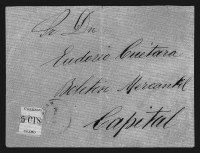 Sr Dn
Eudosio Guitara
Boletin Mercantil
Capital
5 CTS